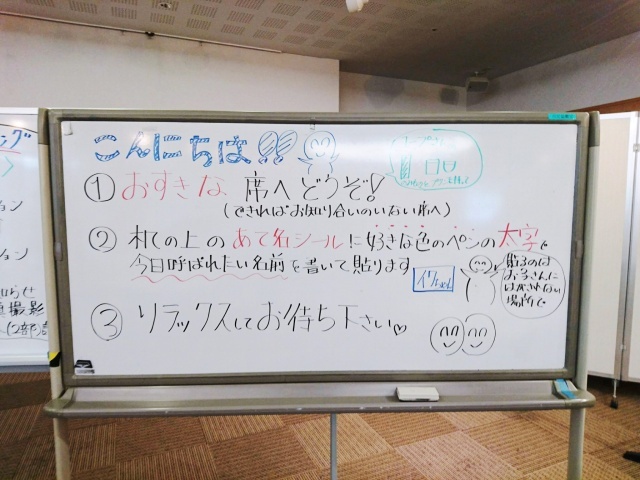 こんにちは!!
① おすきな 席へ どうぞ!
(できればお知り合いのいない席へ)
② 机の上の あて名シールに好きな色のペンの太字で
今日呼ばれたい名前を書いて貼ります
貼るのは
お子さんに
はがされない
場所で
③ リラックスしてお待ち下さい♡
ング
ション
ション
撮影